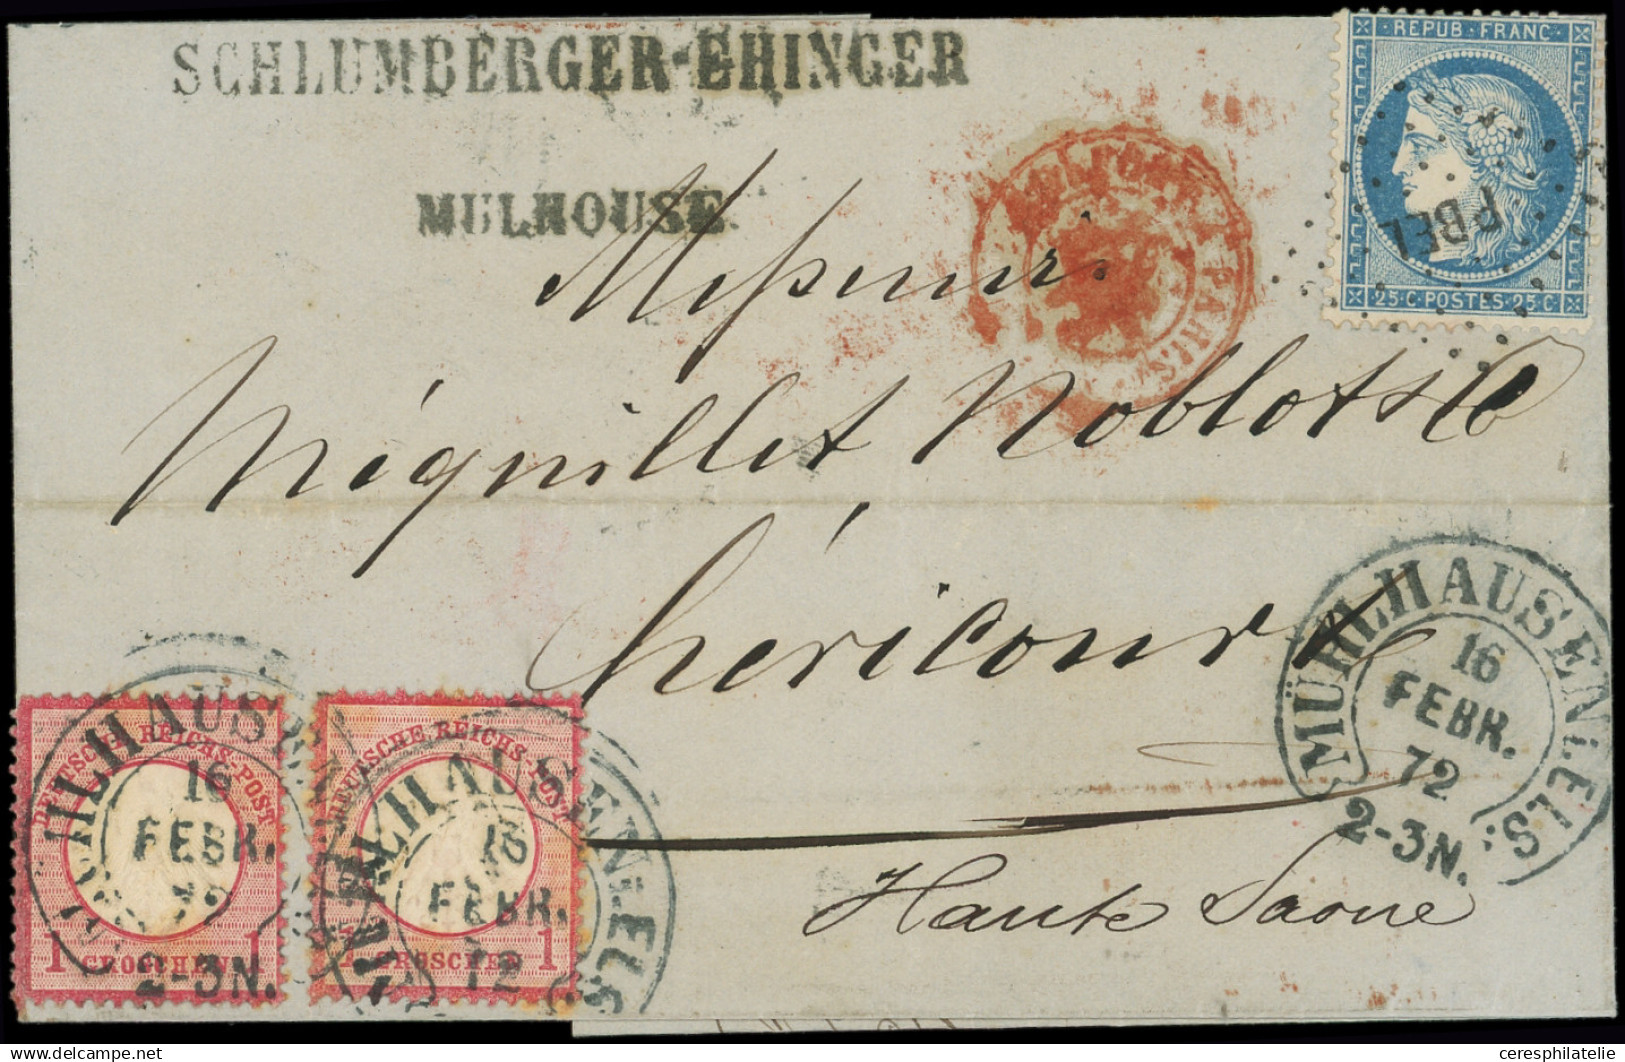 SCHLUMBERGER-EHINGER
MULHOUSE.
REPUB·FRANC·
25·C·POSTES·25·C
PBEL
PARIS
Messieurs
Méquillet Noblot & Cie
héricourt
Haute Saone
MÜHLHAUSEN i. ELS:
16
FEBR.
72
2-3N.
DEUTSCHE REICHS-POST
1 GROSCHEN 1
MÜHLHAUSEN
16
FEBR.
72
2-3N.
DEUTSCHE REICHS-POST
1 GROSCHEN 1
MÜHLHAUSEN i. ELS:
16
FEBR.
72
ceresphilatelie